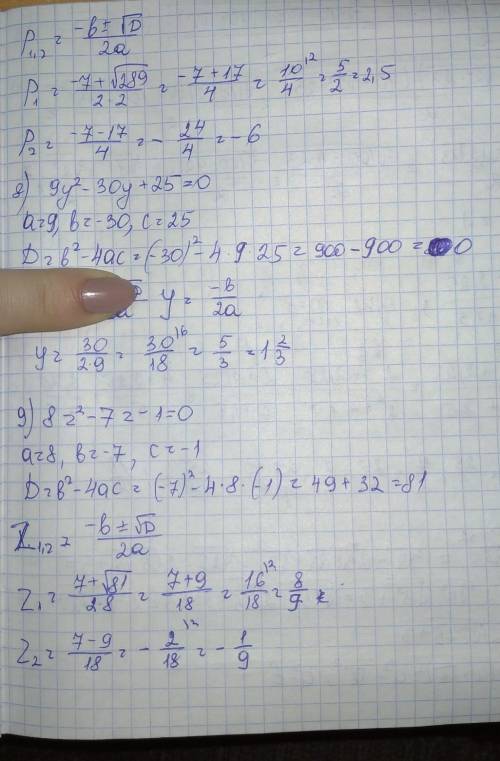 p₁,₂ = (-b ± √D)/(2a)
p₁ = (-7 + √289)/(2·2) = (-7 + 17)/4 = 10/4 |2 = 5/2 = 2,5
p₂ = (-7 - 17)/4 = - 24/4 = -6
8) 9y² - 30y + 25 = 0
a=9, b=-30, c=25
D = b² - 4ac = (-30)² - 4·9·25 = 900 - 900 = 0
y = -b/(2a)
y = 30/(2·9) = 30/18 |6 = 5/3 = 1 2/3
9) 8z² - 7z - 1 = 0
a=8, b=-7, c=-1
D = b² - 4ac = (-7)² - 4·8·(-1) = 49 + 32 = 81
z₁,₂ = (-b ± √D)/(2a)
z₁ = (7 + √81)/(2·8) = (7 + 9)/18 = 16/18 |2 = 8/9
z₂ = (7 - 9)/18 = - 2/18 |2 = - 1/9